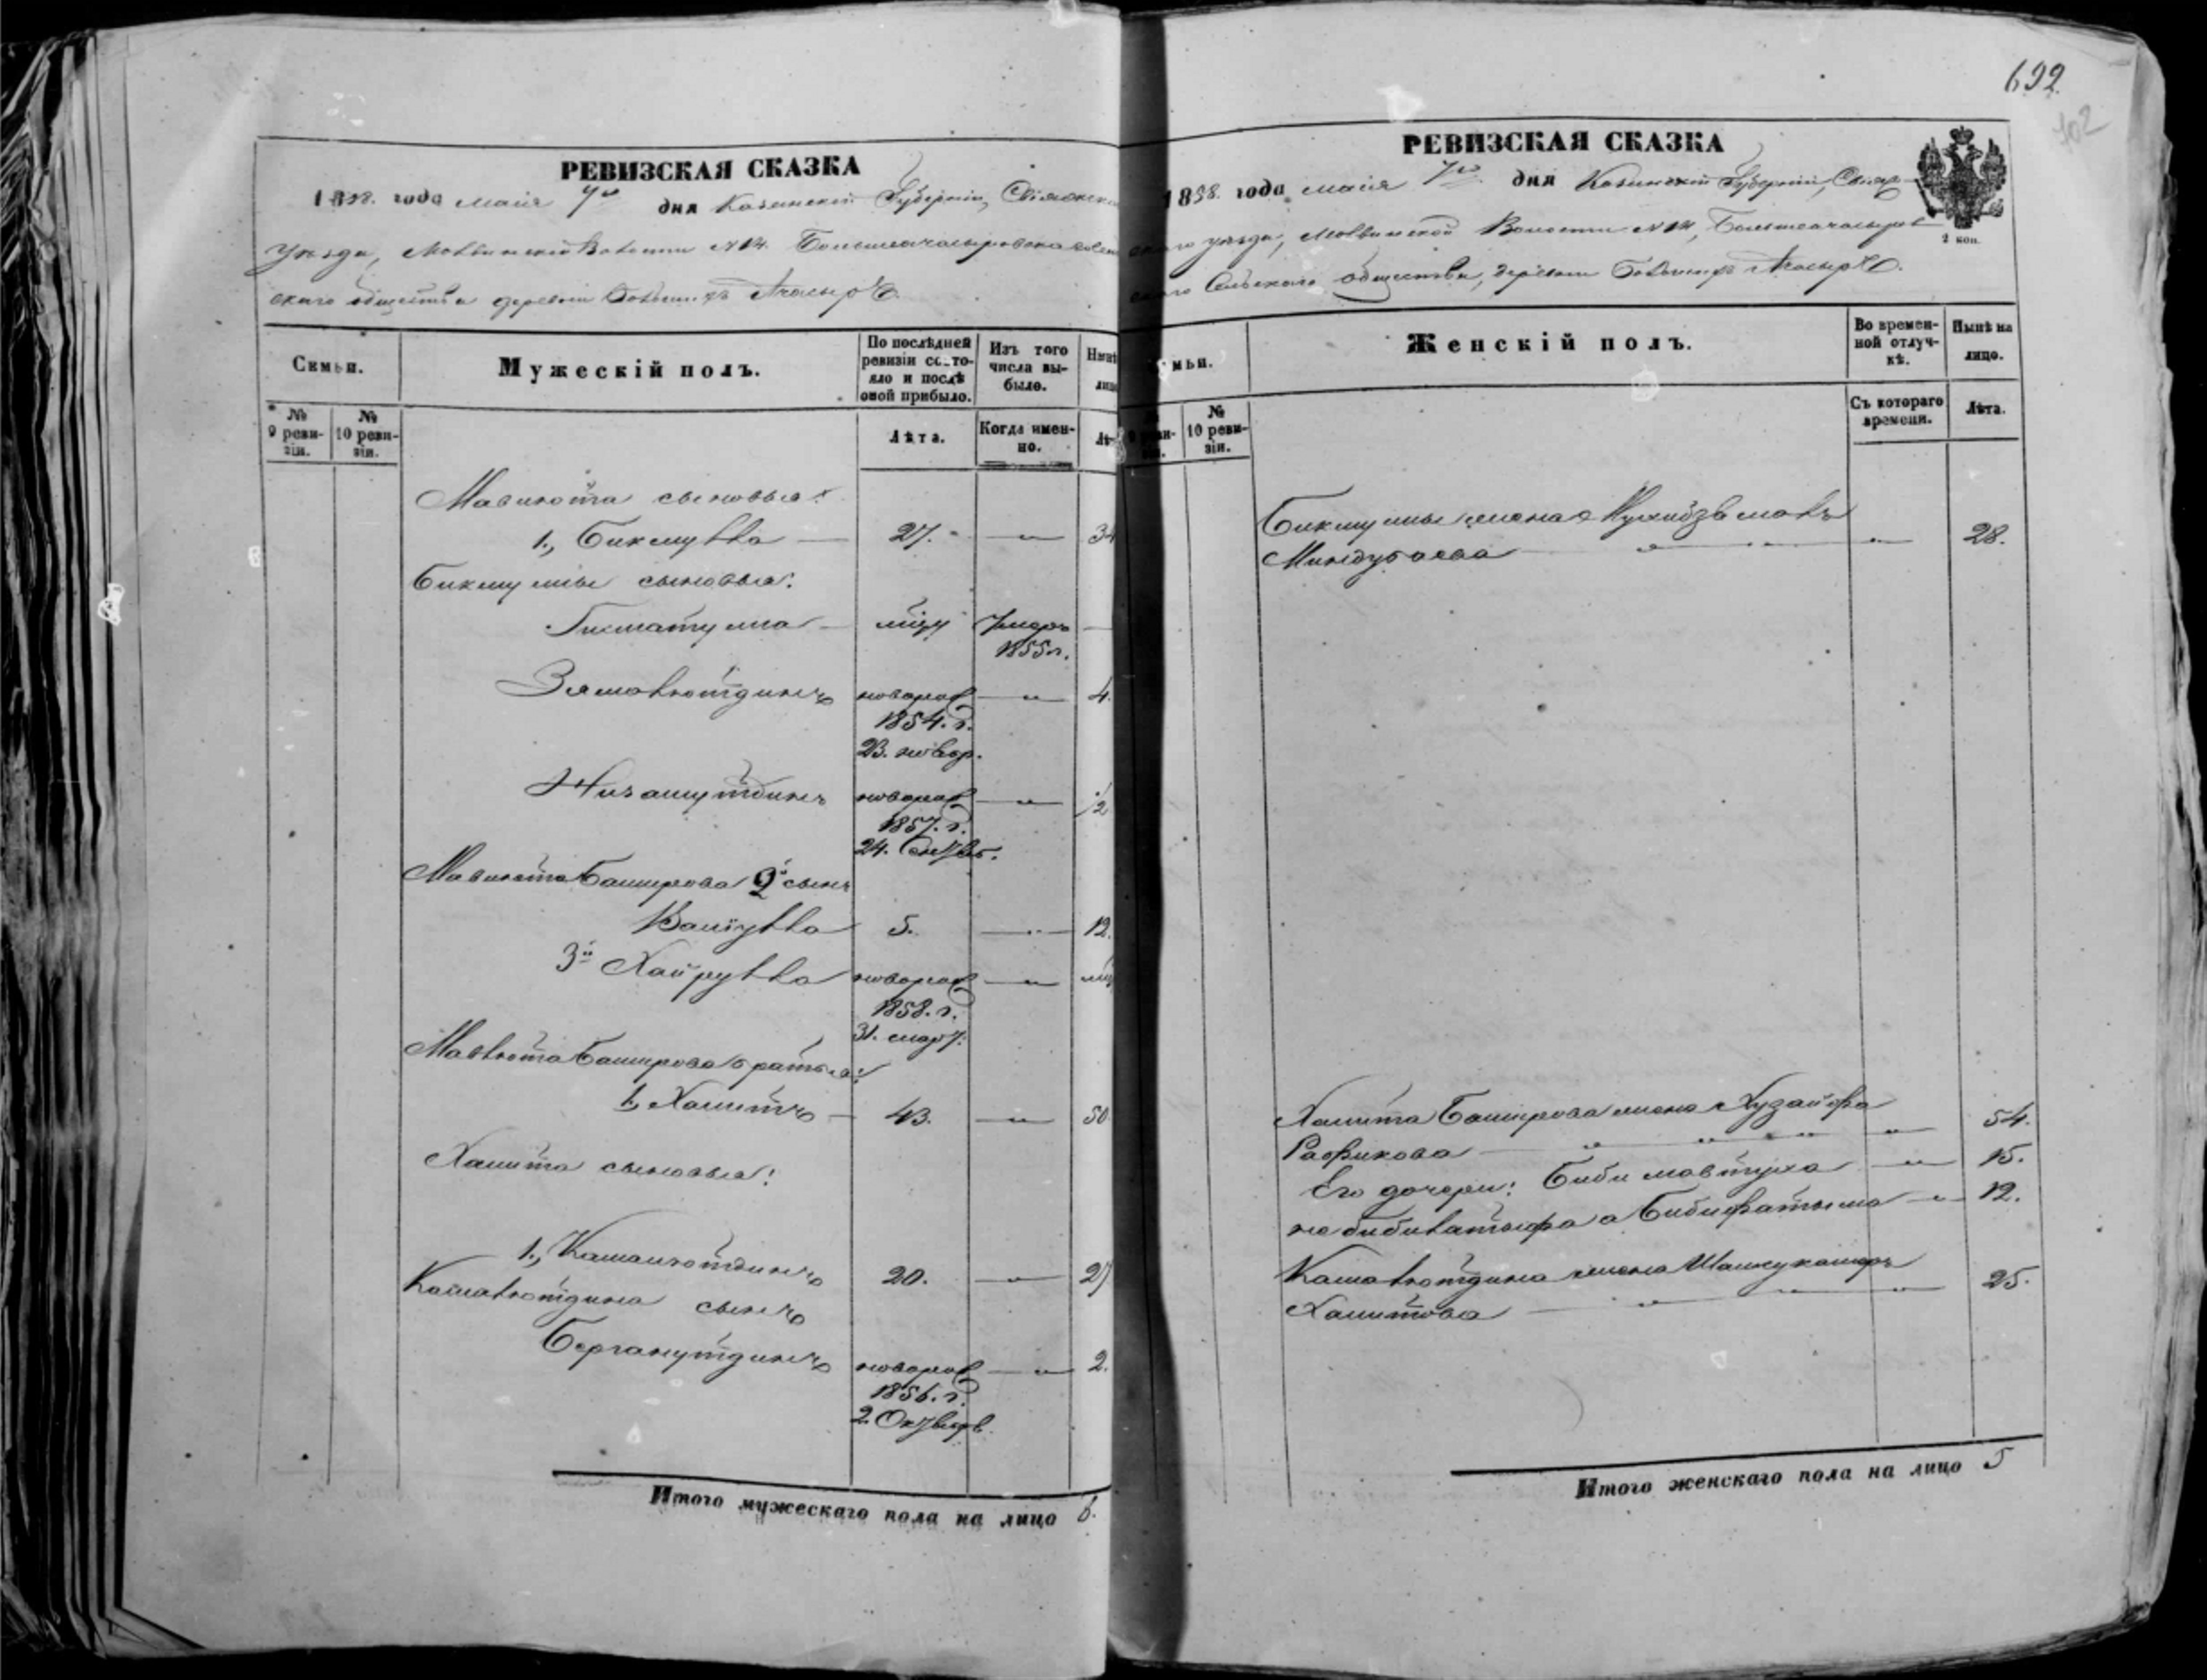 692
102
РЕВИЗСКАЯ СКАЗКА
1858. года мaiя 7го дня Казанской Губернiи, Свiяжска
уѣзда, Молвинской Волости N 14. Большеачасыровска
скаго общества деревни Большихъ Ачасыръ.
Семьи.
Мужескiй полъ.
По послѣдней ревизiи состояло и послѣ оной прибыло.
Изъ того числа выбыло.
Нынѣ
лицо
№ 9 ревизiи.
№ 10 ревизiи.
Лѣта.
Когда именно.
Лѣ
Мавлюта сыновья:
1., Бикмулла — 27. — " — 34
Бикмуллы сыновья:
Гисматулла — Умеръ —
1855 г.
Зямалютдинъ новорож — " — 4.
1854. г.
23. новбр.
Низамутдинъ новорож — " — ½
1857. г.
24. Октяб.
Мавлюта Баширова 2й сынъ
Валiулла 5. — " — 12.
3й Хайрулла новорож — " —
1858. г.
31. март.
Мавлюта Баширова братья:
1, Хамитъ — 43. — " — 50
Хамита сыновья:
1., Камалютдинъ 20. — " — 27
Камалютдина сынъ
Берганутдинъ новорож — " — 2.
1856. г.
2. Октябр.
Итого мужескаго пола на лицо 6.
РЕВИЗСКАЯ СКАЗКА
1858. года маiя 7го дня Казанской Губернiи, Свiяж
скаго уѣзда, Молвинской Волости N 14, Большеачасыров
скаго Сельскаго общества, деревни Большихъ Ачасыръ.
2 коп.
мьи.
Женскiй полъ.
Во временной отлучкѣ.
Нынѣ на лицо.
№ 10 ревизiи.
Съ котораго времени.
Лѣта.
Бикмуллы жена
Миндубаева — " — " — " — 28.
Хамита Баширова жена Хузайфа
Рафикова — " — " — " — 54.
Его дочери: Биби — " — 15.
а Бибифатыма — " — 12.
Камалютдина жена Шамсукамаръ
Хамитова — " — " — " — 25.
Итого женскаго пола на лицо 5